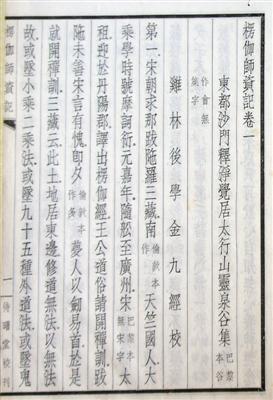 楞伽師資記卷一
東都沙門釋淨覺居太行山靈泉谷集巴黎本谷
作會無集字
雞林後學金九經校
第一宋朝求那跋陀羅三藏南天竺國人大
乘學時號摩訶衍元嘉年隨舩至廣州宋太
祖迎於丹陽郡譯出楞伽經王公道俗請開禪訓跋
陀未善宋言有愧即夕夢人以劒易首於是
就開禪訓三藏云此土地居東邊修道無法以無
故或墜小乘二乘法或墜九十五種外道法或墜鬼
楞伽師資記
一
校刊